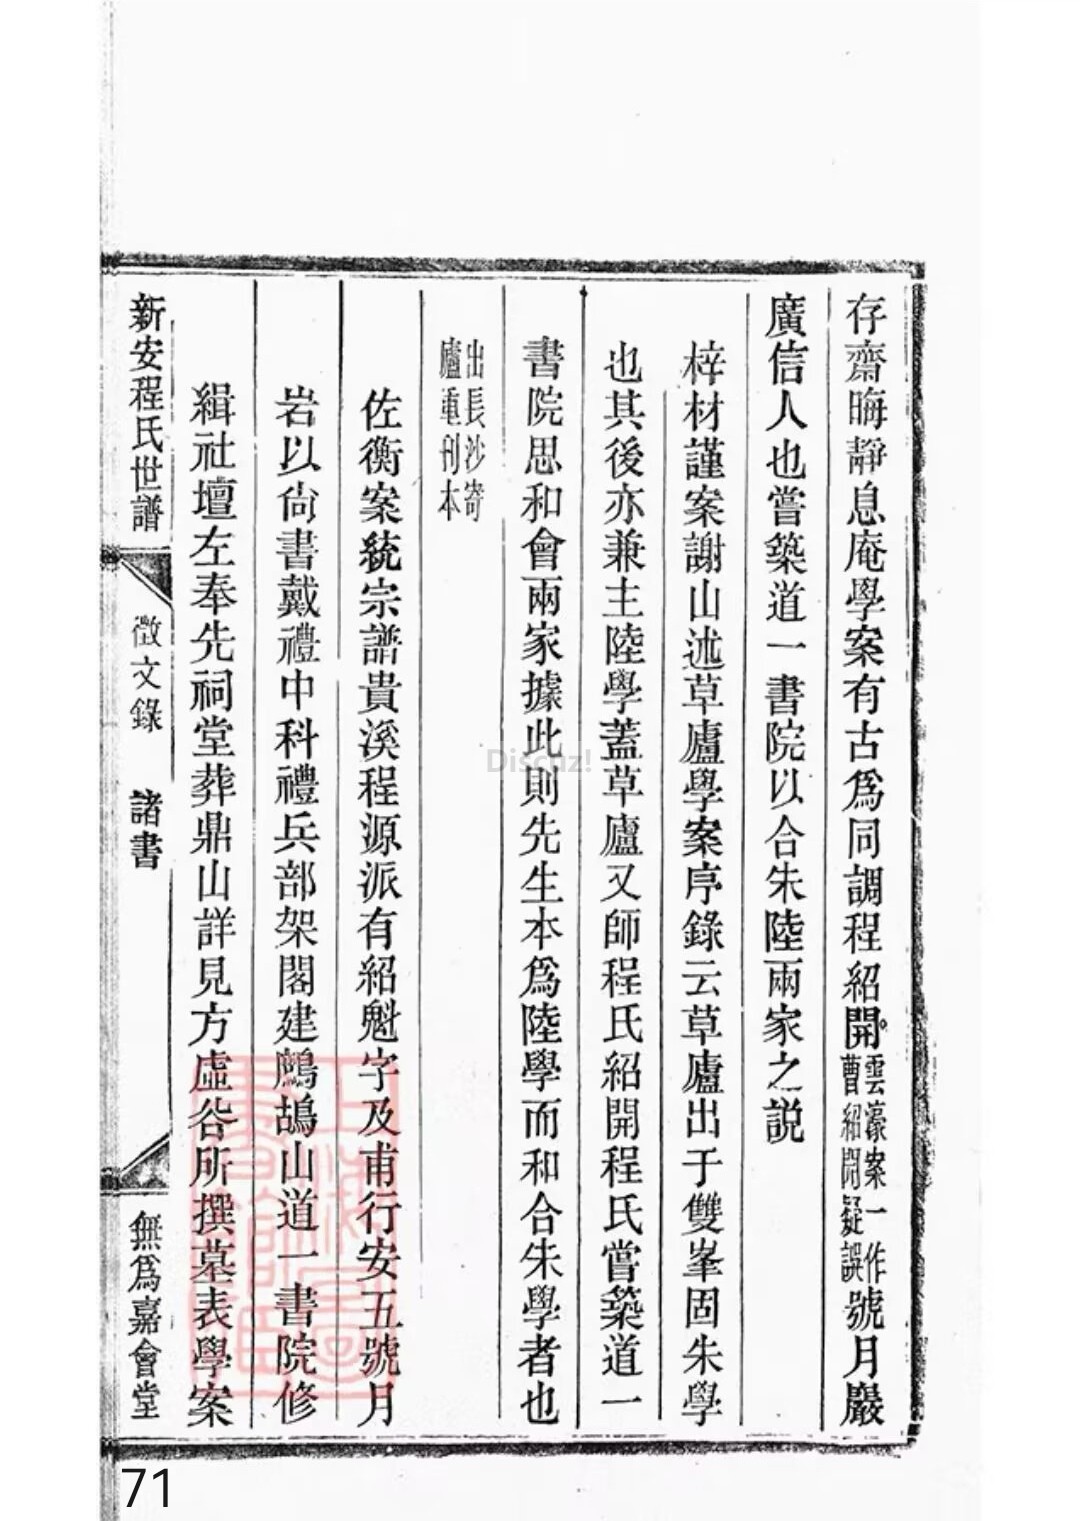 存齋晦靜息庵學案有古爲同調程紹開雲濠案一作曹紹開疑誤號月巖
廣信人也嘗築道一書院以合朱陸兩家之説
梓材謹案謝山述草廬學案序錄云草廬出于雙峯固朱學
也其後亦兼主陸學蓋草廬又師程氏紹開程氏嘗築道一
書院思和會兩家據此則先生本爲陸學而和合朱學者也
出長沙寄
廬重刊本
佐衡案統宗譜貴溪程源派有紹魁字及甫行安五號月
岩以尙書戴禮中科禮兵部架閣建鷓鴣山道一書院修
緝社壇左奉先祠堂葬鼎山詳見方虛谷所撰墓表學案
新安程氏世譜
徵文錄 諸書
無爲嘉會堂
Discuz!
71